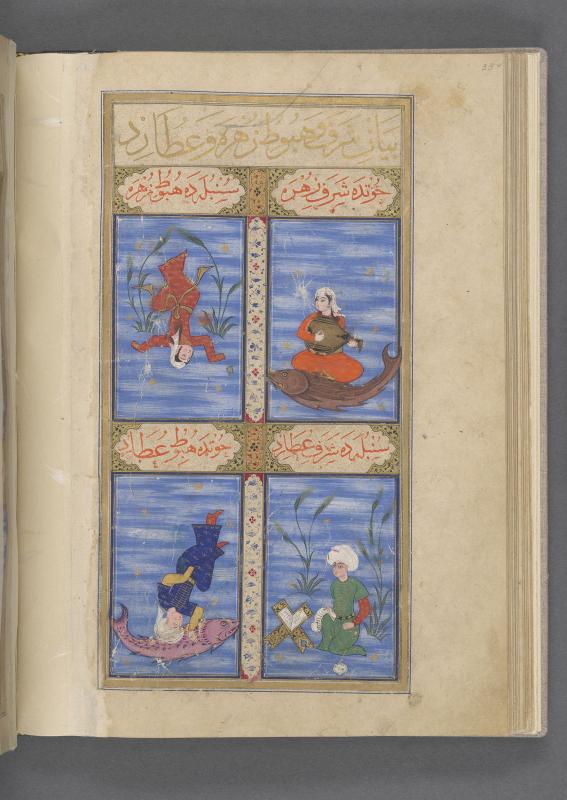 بيان شرف و هبوط زهره و عطارد
حوتده شرف زهره
سنبله ده هبوط زهره
سنبله ده شرف عطارد
حوتده هبوط عطارد